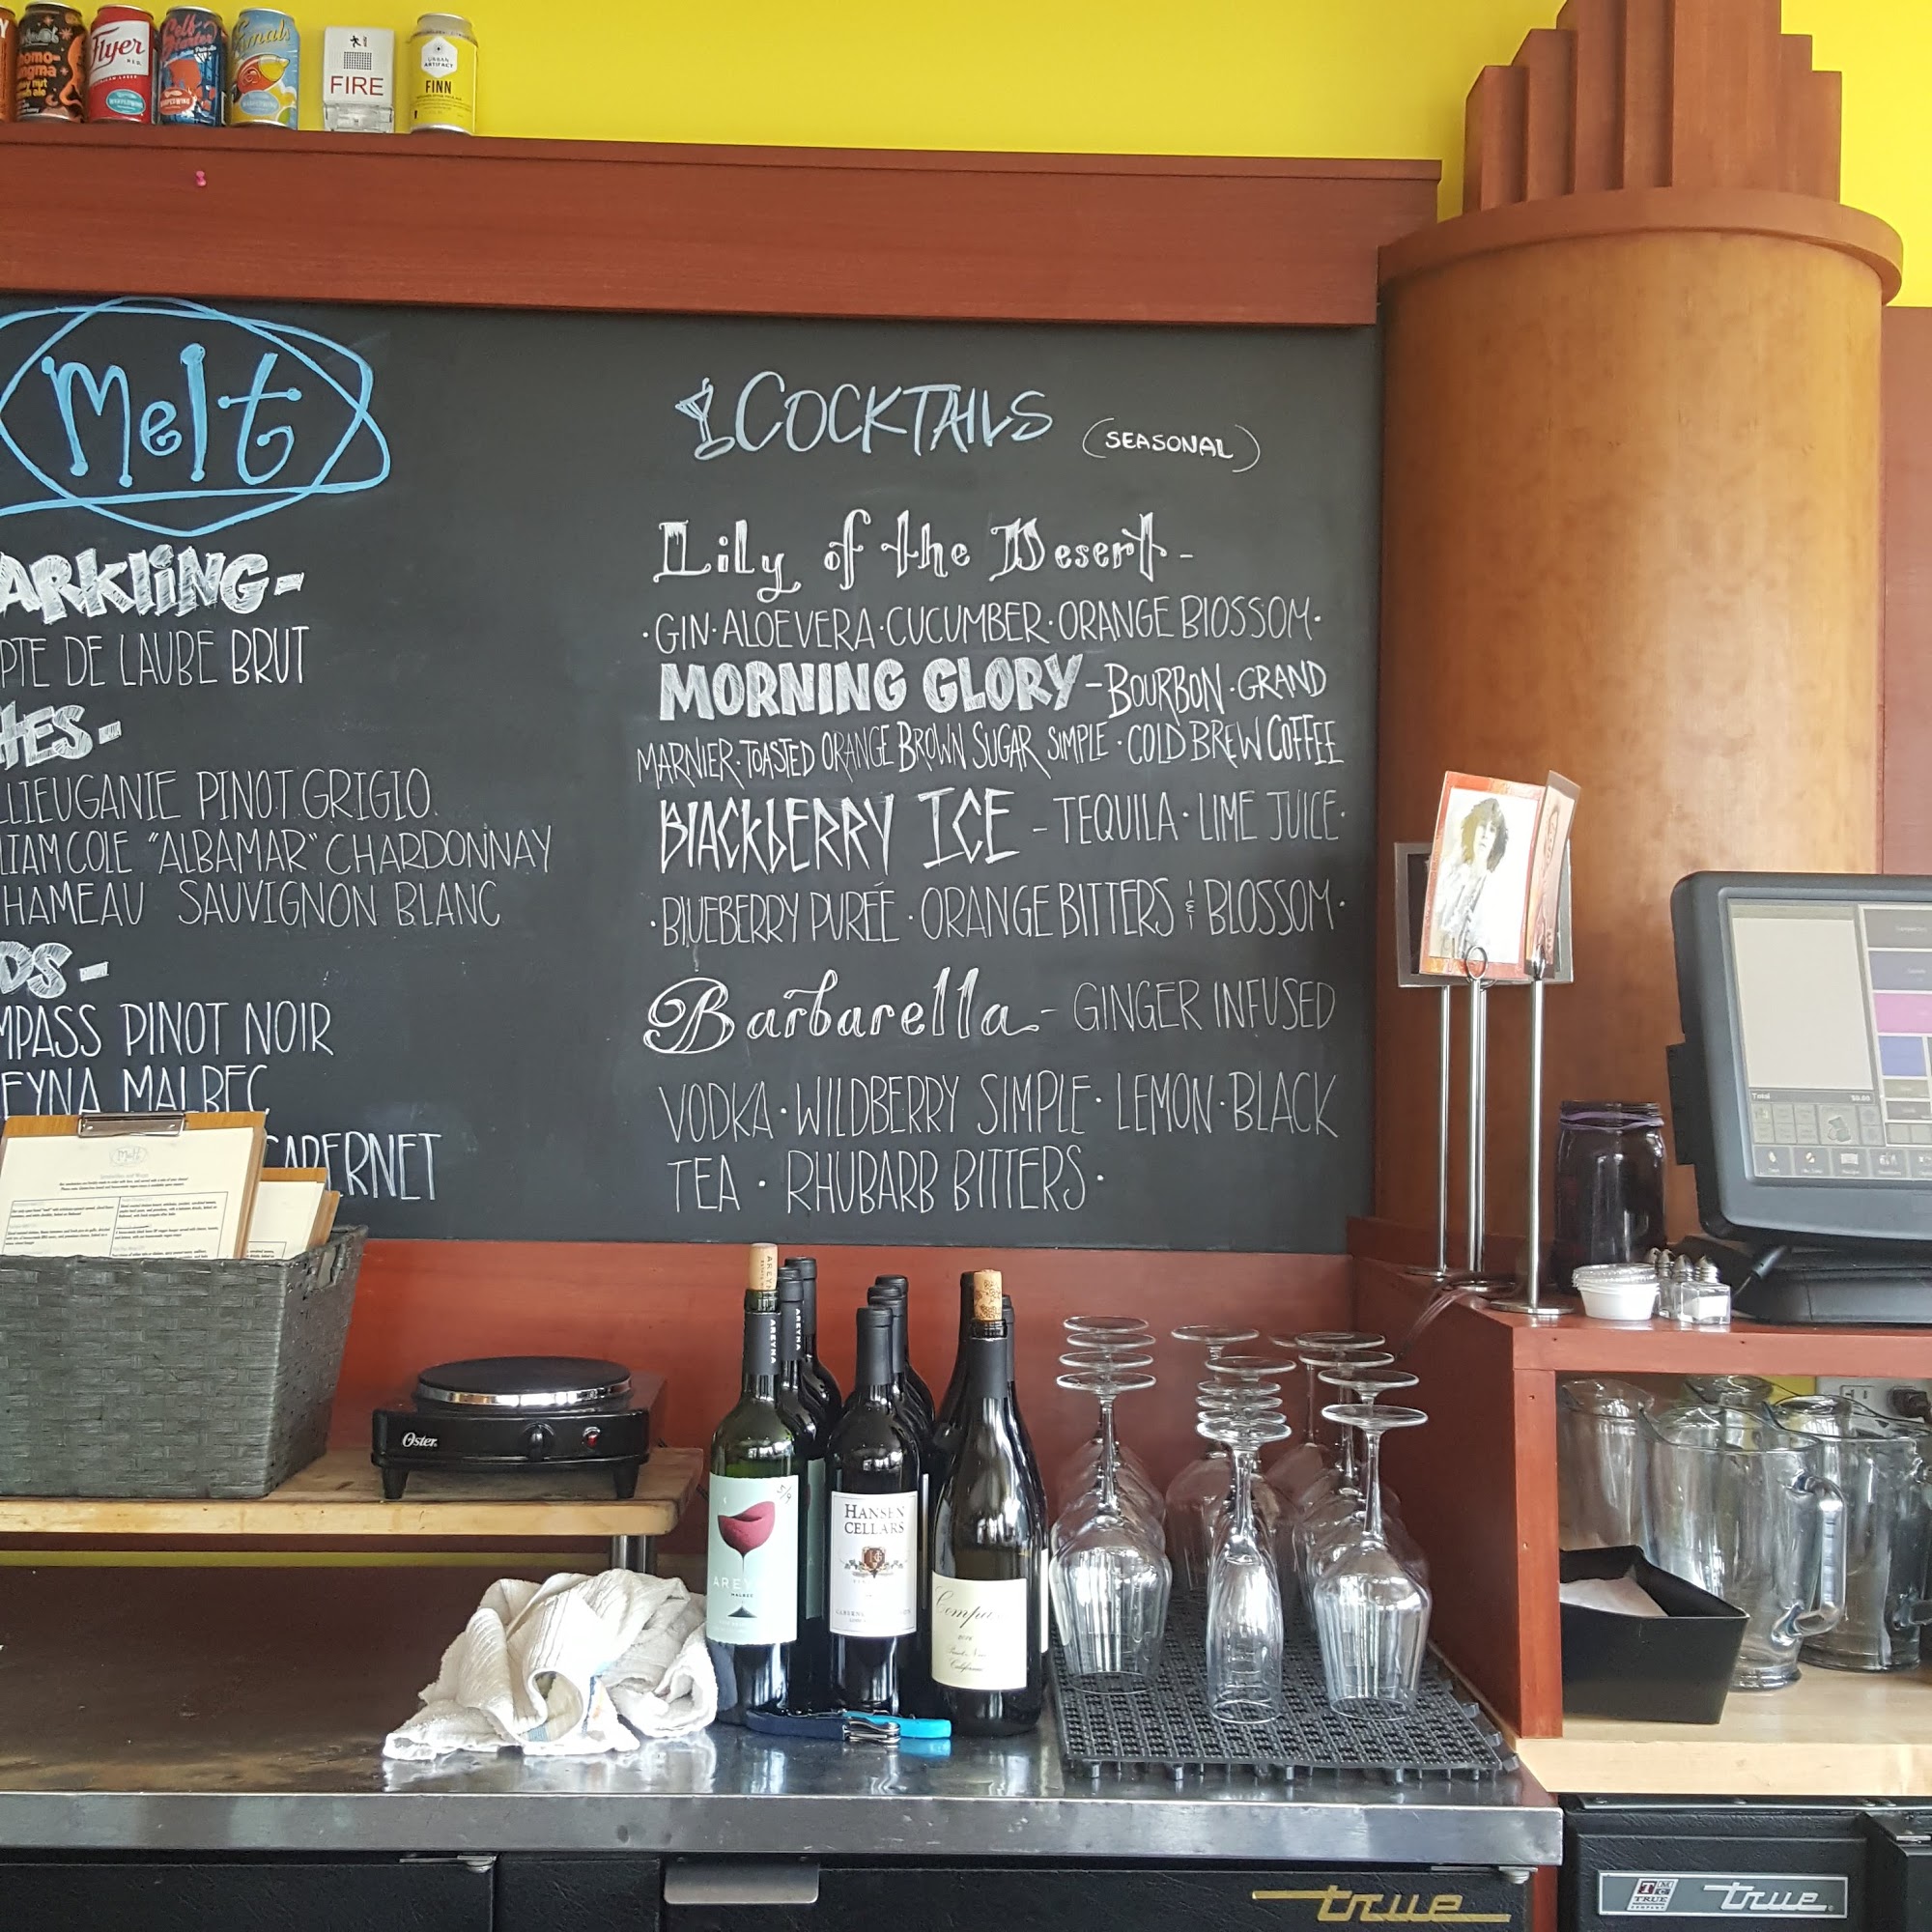 Flyer
Self Starter
FIRE
URBAN ARTIFACT
FINN
Melt
ARKliNG-
PTE DE LAUBE BRUT
TES-
LLIEUGANIE PINOT GRIGIO
LIAM COLE "ALBAMAR" CHARDONNAY
HAMEAU SAUVIGNON BLANC
DS-
MPASS PINOT NOIR
EYNA MALBEC
CABERNET
COCKTAILS (SEASONAL)
Lily of the Desert -
·GIN·ALOEVERA·CUCUMBER·ORANGE BlOSSOM·
MORNING GLORY-BOURBON·GRAND
MARNIER·TOASTED ORANGE BROWN SUGAR SIMPLE·COLD BREW COFFEE
BlACKbERRY ICE - TEQUILA·LIME JUICE·
·BlUEBERRY PURÉE·ORANGE BITTERS & BLOSSOM·
Barbarella- GINGER INFUSED
VODKA·WILDBERRY SIMPLE·LEMON·BLACK
TEA · RHUBARB BITTERS·
Melt
Total $0.00
Oster
AREYNA
AREYNA
5/9
AREY
MALBEC
HANSEN
CELLARS
Compass
Pinot Noir
California
true
TRUE
true